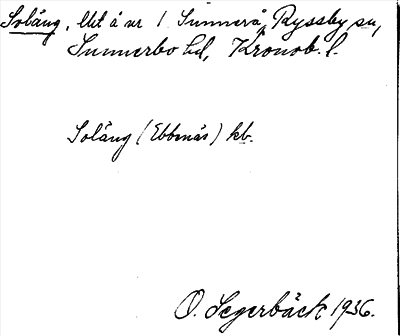 Soläng, lht å nr 1 Sunnerå, Ryssby sn,
Sunnerbo hd, Kronob. l.
Soläng (Ebbenäs) kb.
O. Segerbäck 1936.